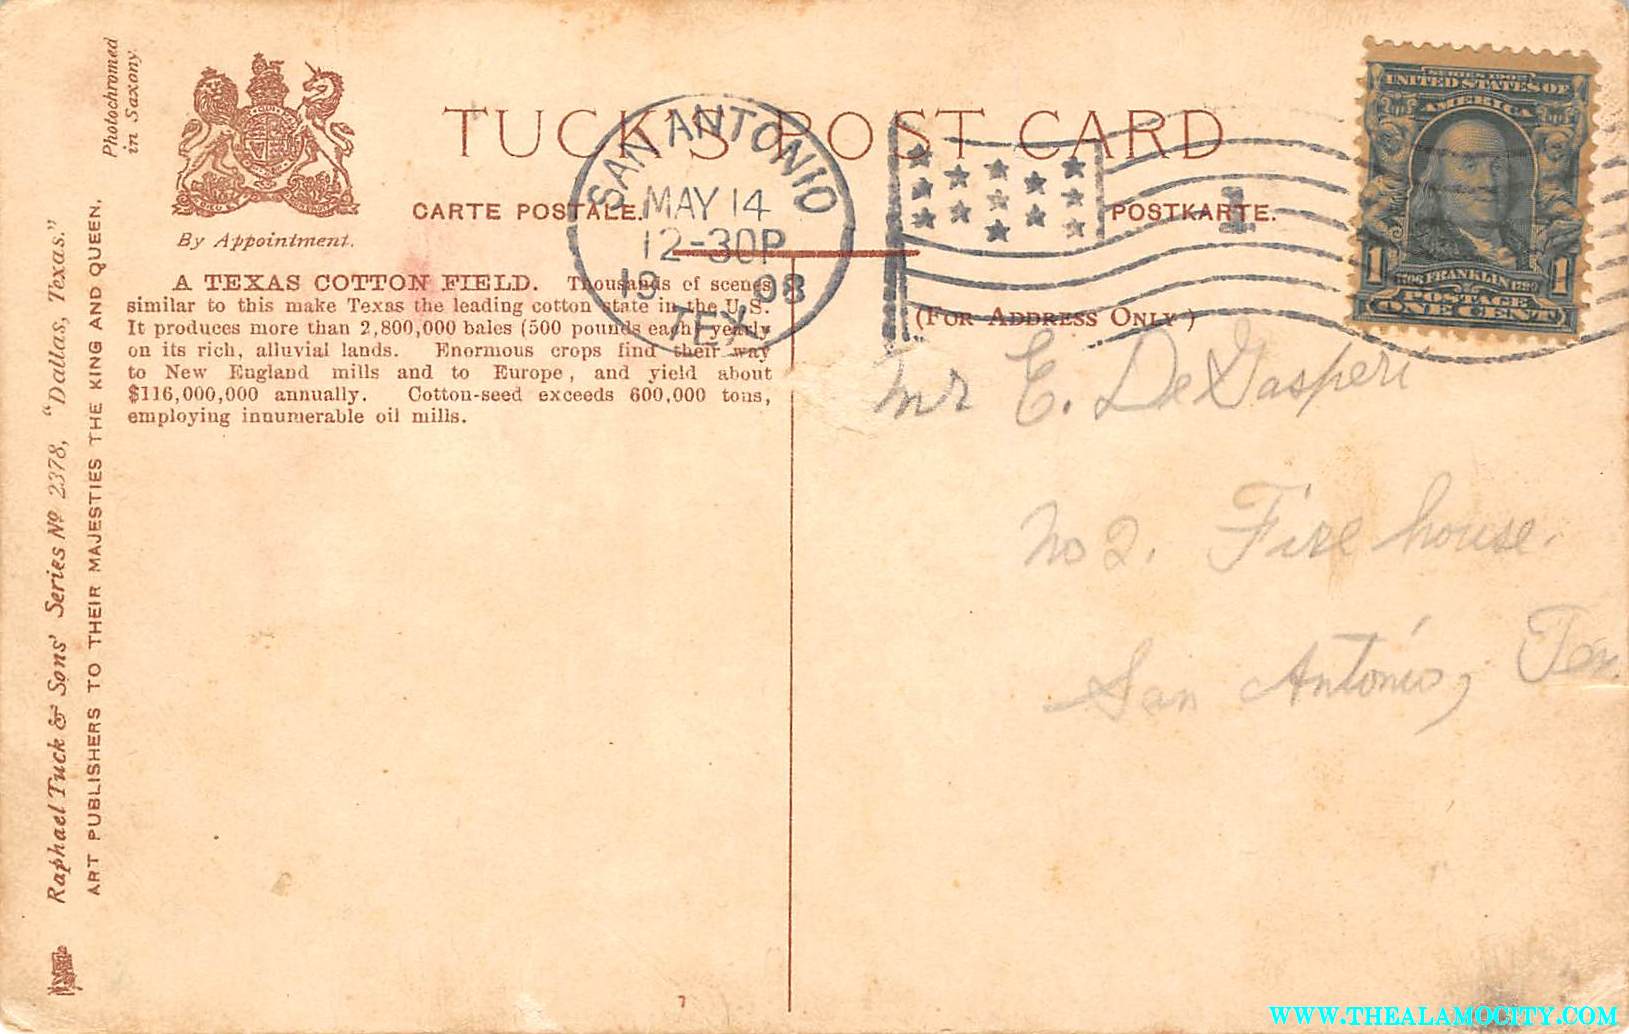 Photochromed
in Saxony.
Raphael Tuck & Sons' Series Nº 2378, "Dallas, Texas."
ART PUBLISHERS TO THEIR MAJESTIES THE KING AND QUEEN.
By Appointment.
TUCK'S POST CARD
CARTE POSTALE. POSTKARTE.
SAN ANTONIO
MAY 14
12-30P
19 08
TEX.
1
A TEXAS COTTON FIELD. Thousands of scenes
similar to this make Texas the leading cotton state in the U.S.
It produces more than 2,800,000 bales (500 pounds each) yearly
on its rich, alluvial lands. Enormous crops find their way
to New England mills and to Europe, and yield about
$116,000,000 annually. Cotton-seed exceeds 600,000 tons,
employing innumerable oil mills.
(FOR ADDRESS ONLY)
SERIES 1902
UNITED STATES OF
AMERICA
1706 FRANKLIN 1790
1 POSTAGE 1
ONE CENT
Mr E. DeGasperi
No 2. Fire house.
San Antonio, Tex.
7
WWW.THEALAMOCITY.COM